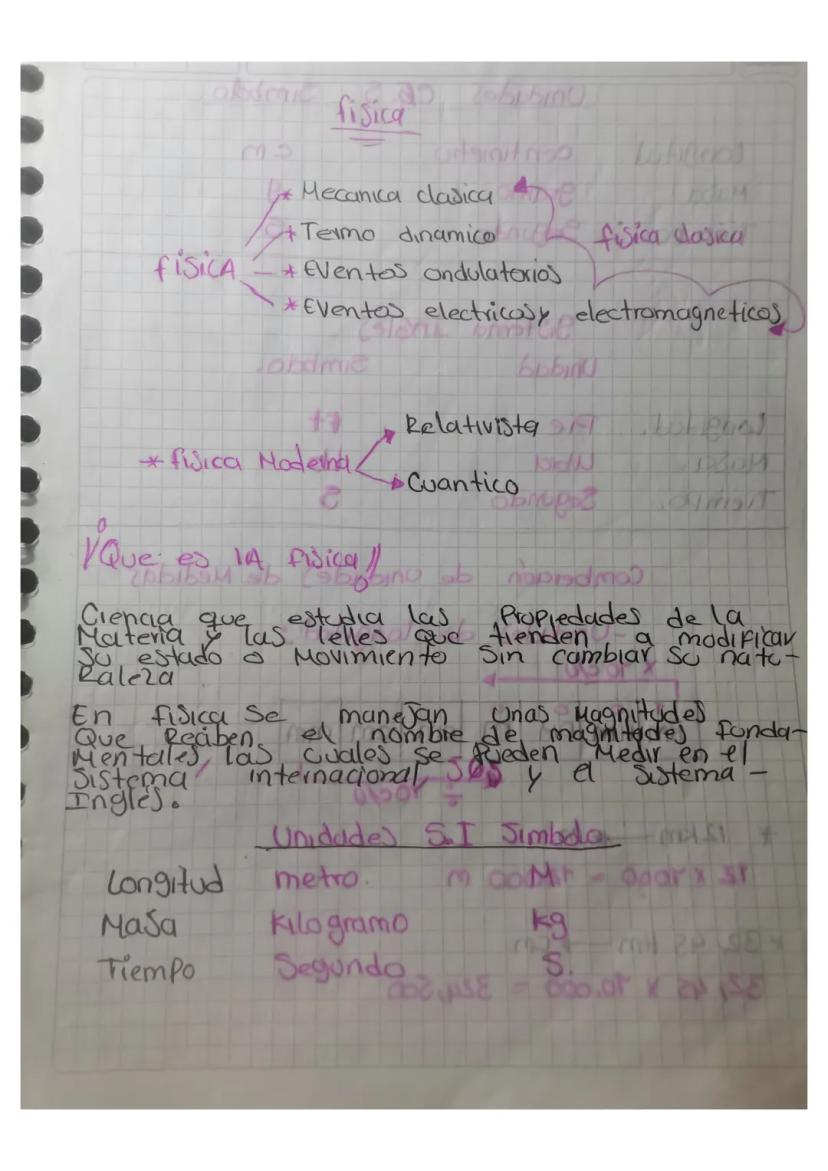 fisica
* Mecanica clasica
* Termo dinamico
fisica clasica
fisicA
* EVentos ondulatorios
* EVentos electricos y electromagneticos
Relativista
* fisica Moderna
Cuantico
¿Que es lA fisica?
Ciencia que estudia las Propiedades de la
Materia y las lelles que tienden a modificar
Su estado o Movimiento Sin cambiar Su natu-
Raleza
En fisica Se manejan unas Magnitudes
Que Reciben el nombre de magnitudes funda-
Mentales, las cuales se pueden Medir en el
Sistema internacional y el Sistema -
Ingles.
Unidades S.I Simbolo
Longitud metro. M
MaSa Kilogramo kg
Tiempo Segundo S.